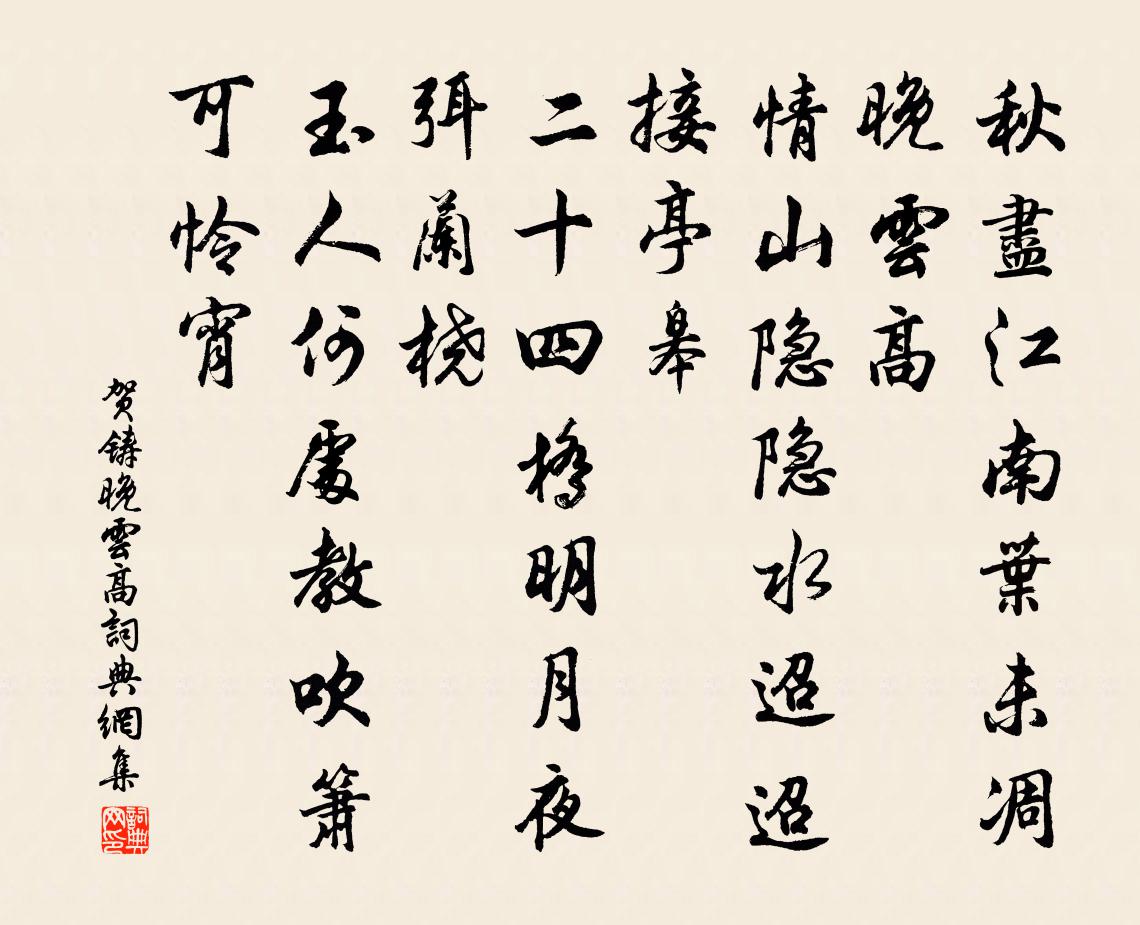 秋盡江南葉未凋
晚雲高
情山隐隐水迢迢
接亭皋
二十四橋明月夜
弭蘭橈
玉人何處教吹簫
可怜宵
贺鑄晚雲高詞典網集
詞典网印